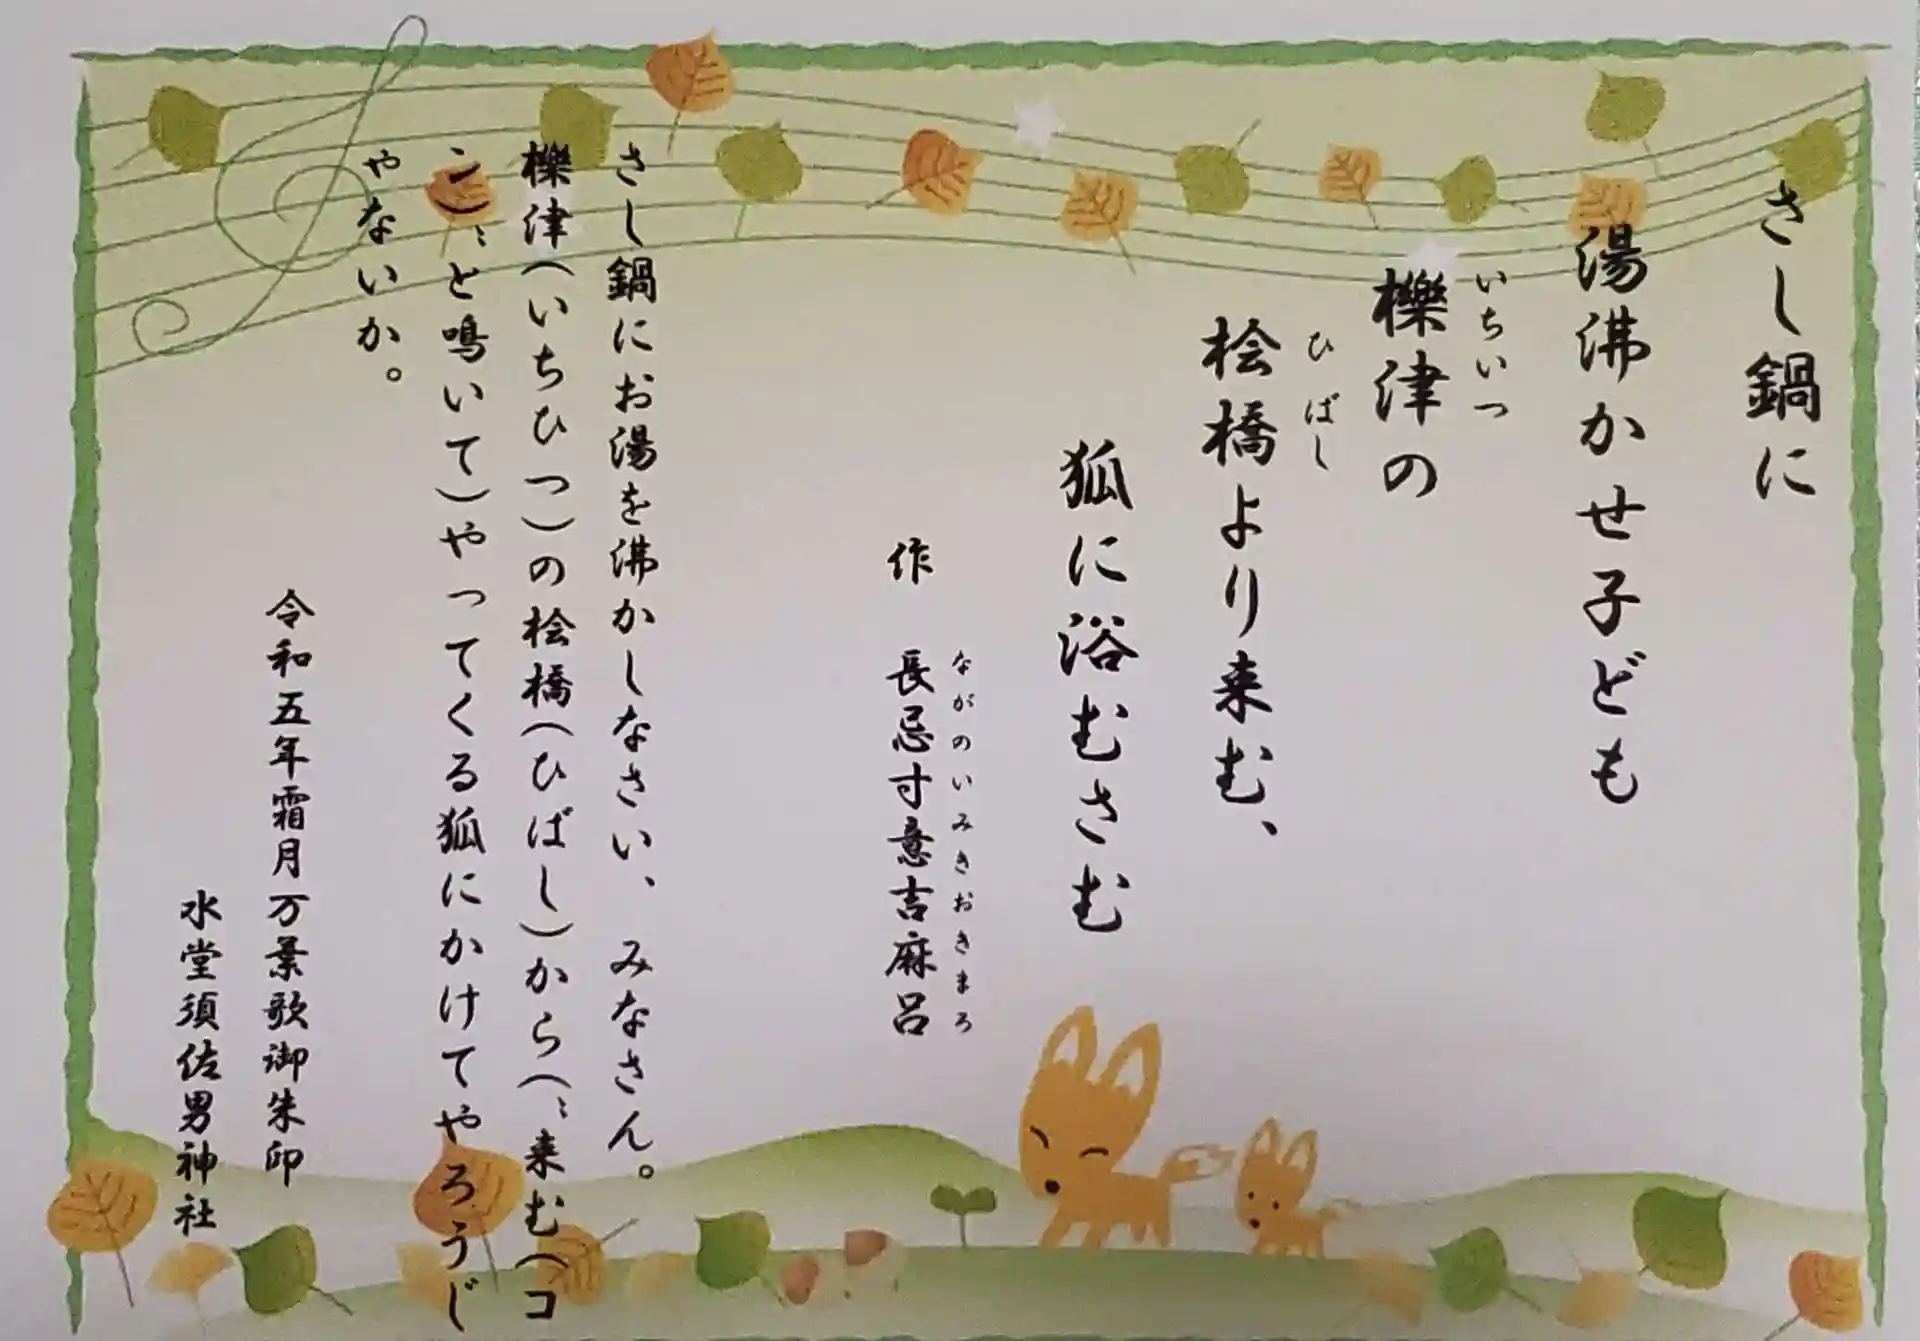 さし鍋に
湯沸かせ子ども
いちいつ
櫟津の
ひばし
桧橋より来む、
狐に浴むさむ
ながのいみきおきまろ
作　長忌寸意吉麻呂
さし鍋にお湯を沸かしなさい、みなさん。
櫟津(いちひつ)の桧橋(ひばし)から(〝来む(コ
ン)〟と鳴いて)やってくる狐にかけてやろうじ
ゃないか。
令和五年霜月万葉歌御朱印
水堂須佐男神社